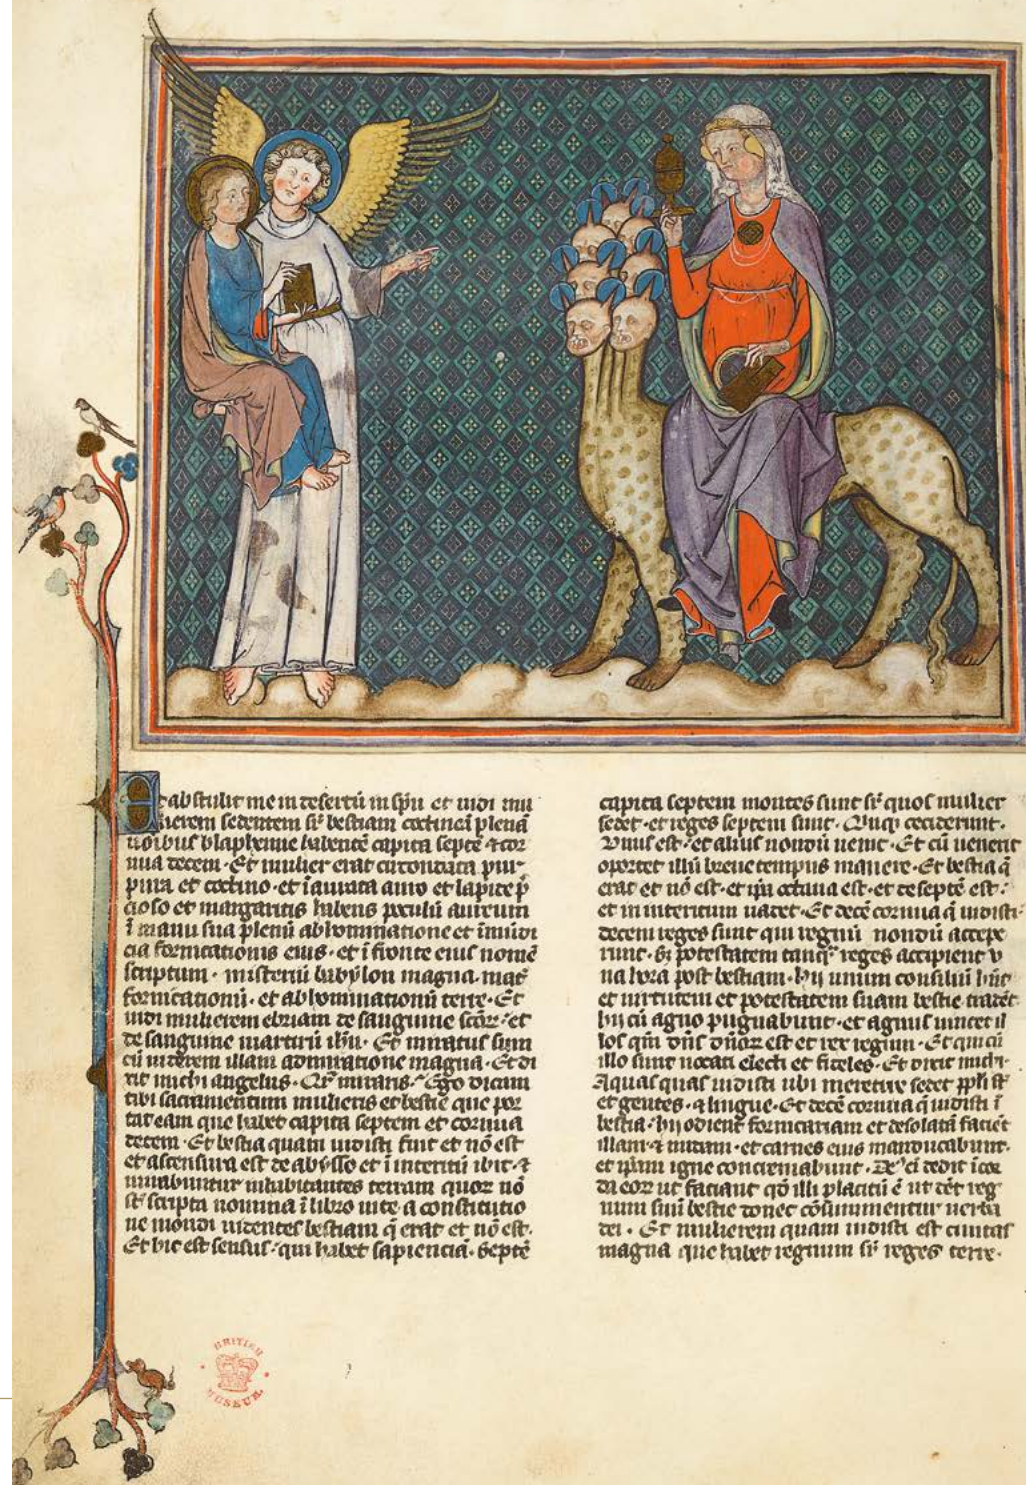 Et abstulit me in desertū in spū et uidi mu
lierem sedentem sr̄ bestiam coccineā plenā
noībus blasphemie habentē capita septē ⁊ cor
nua decem · Et mulier erat circundata pur
pura et coccino · et īaurata auro et lapide p̄
cioso et margaritis habens poculū aureum
ī manu sua plenū abhominatione et īmūdi
cia fornicationis eius · et ī fronte eius nomē
scriptum · misteriū babylon magna · mat̄
fornicationū · et abhominationū terre · Et
uidi mulierem ebriam de sanguine sc̄oꝝ · et
de sanguine martirū ihū · Et miratus sum
cū uiderem illam admiratione magna · Et di
xit michi angelus · Qr̄ miraris · Ego dicam
tibi sacramentum mulieris et bestie que por
tat eam que habet capita septem et cornua
decem · Et bestia quam uidisti fuit et nō est
et ascensura est de abysso et ī interitū ibit · ⁊
mirabuntur inhabitantes terram quoꝝ nō
st̄ scripta nomina ī libro uite a constitutio
ne mondi uidentes bestiam q̄ erat et nō est ·
Et hic est sensus · qui habet sapienciā · Septē
capita septem montes sunt sr̄ quos mulier
sedet · et reges septem sunt · Quinq; ceciderunt ·
Vnus est · et alius nondū uenit · Et cū uenerit
oportet illū breue tempus manere · Et bestia q̄
erat et nō est · et ip̄a octaua est · et de septē est ·
et in interitum uadet · Et decē cornua q̄ uidisti ·
decem reges sunt qui regnū nondū accepe
runt · sꝫ potestatem tanq̄ reges accipient v
na hora post bestiam · hij unum consiliū hn̄t
et uirtutem et potestatem suam bestie tradēt
hij cū agno pugnabunt · et agnus uincet il
los qm̄ dn̄s dn̄oꝝ est et rex regum · Et qui cū
illo sunt uocati electi et fideles · Et dixit michi ·
Aquas quas uidisti ubi meretrix sedet ppl̄i st̄
et gentes · ⁊ lingue · Et decē cornua q̄ uidisti ī
bestia · hij odient fornicariam et desolatā faciēt
illam · ⁊ nudam · et carnes eius manducabunt ·
et ip̄am igne concremabunt · De' ei dedit ī cor
da eoꝝ ut faciant qd̄ illi placitū ē ut dēt reg
num suū bestie donec cōsummentur uerba
dei · Et mulierem quam uidisti est ciuitas
magna que habet regnum sr̄ reges terre ·
BRITISH
MUSEUM